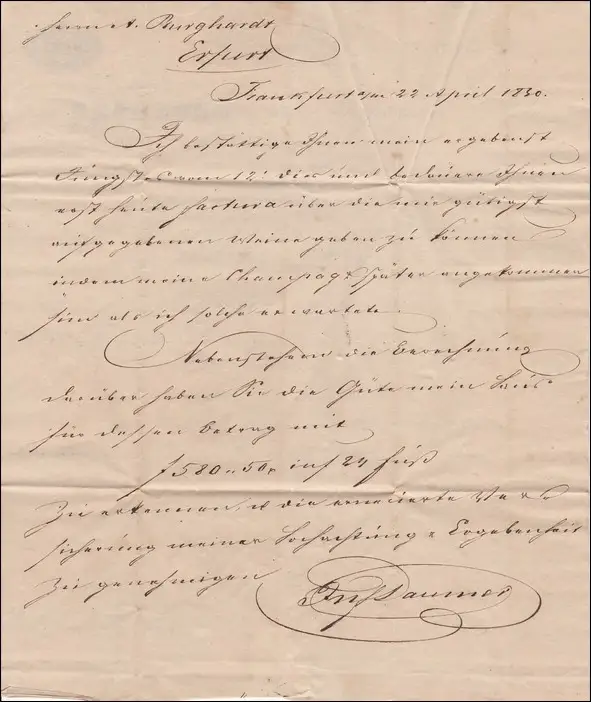 Herrn A. Burghardt
Erfurt
Frankfurt a/m 22 April 1830.
Ich bestättige Ihnen mein ergebenst
Jüngstes vom 12 dies und bedauere Ihnen
erst heute factura über die mir gütigst
aufgegebenen Weine geben zu können
indem meine Champag. später angekommen
sein als ich solche erwartete.
Nebenstehend die Berechnung
darüber haben Sie die Güte mein
für dessen Betrag mit
f 580 50 im 24 fuß
Zu erkennen, & die erneuerte Ver
sicherung meiner Hochachtung & Ergebenheit
Zu genehmigen